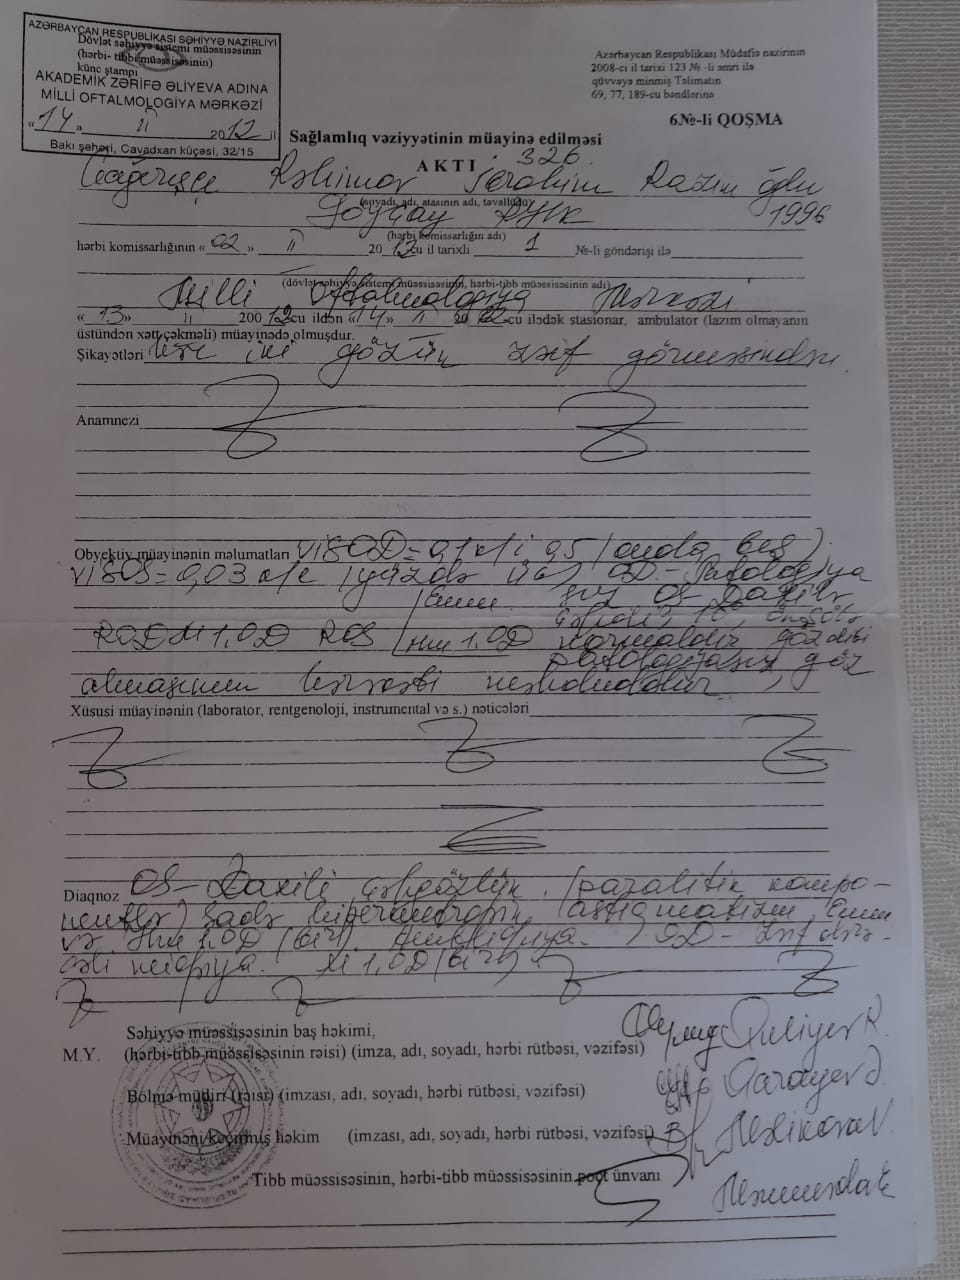 AZƏRBAYCAN RESPUBLİKASI SƏHİYYƏ NAZİRLİYİ
Dövlət səhiyyə sistemi müəssisəsinin
(hərbi- tibbi müəssisəsinin)
künc ştampı
AKADEMİK ZƏRİFƏ ƏLİYEVA ADINA
MİLLİ OFTALMOLOGİYA MƏRKƏZİ
«14» II 2012 il
Bakı şəhəri, Cavadxan küçəsi, 32/15
Azərbaycan Respublikası Müdafiə nazirinin
2008-ci il tarixi 123 № -li əmri ilə
qüvvəyə minmiş Təlimatın
69, 77, 189-cu bəndlərinə
6№-li QOŞMA
Sağlamlıq vəziyyətinin müayinə edilməsi
AKTI 326
Çağırışçı Rəhimov İbrahim oğlu
(soyadı, adı, atasının adı, təvəllüdü)
Göyçay 1996
(hərbi komissarlığın adı)
hərbi komissarlığının «02» II 2012cu il tarixli 1 №-li göndərişi ilə
(dövlət səhiyyə sistemi müəssisəsinin, hərbi-tibb müəssisəsinin adı)
Milli Oftalmologiya Mərkəzi
«13» II 20012cu ildən «14» II 2012-cu ilədək stasionar, ambulator (lazım olmayanın
üstündən xətt çəkməli) müayinədə olmuşdur.
Şikayətləri hər iki gözün zəif görməsindən
Anamnezi
Obyektiv müayinənin məlumatları VISOD= 0,5 (onda beş)
VISOS=0,03 (yüzdə üç) OD- Patologiya
OS Daxilə
ROD M 1,0D ROS Hm 1,0D normaldır göz dibi
patologiyasız göz
almasının hərəkəti
Xüsusi müayinənin (laborator, rentgenoloji, instrumental və s.) nəticələri
Diaqnoz OS- Daxili çəpgözlük (paralitik kompo-
nentlə) Sadə hipermetropik astiqmatizm Emm
və Hm 1.0D (bir). Ambliopiya. OD- Zəif dərə-
cəli miopiya. M 1,0D (bir)
Səhiyyə müəssisəsinin baş həkimi,
M.Y. (hərbi-tibb müəssisəsinin rəisi) (imza, adı, soyadı, hərbi rütbəsi, vəzifəsi)
Quliyev R
Bölmə müdiri (rəisi) (imzası, adı, soyadı, hərbi rütbəsi, vəzifəsi)
Qarayev
Müayinəni keçirmiş həkim (imzası, adı, soyadı, hərbi rütbəsi, vəzifəsi)
Məlikova
Tibb müəssisəsinin, hərbi-tibb müəssisəsinin poçt ünvanı